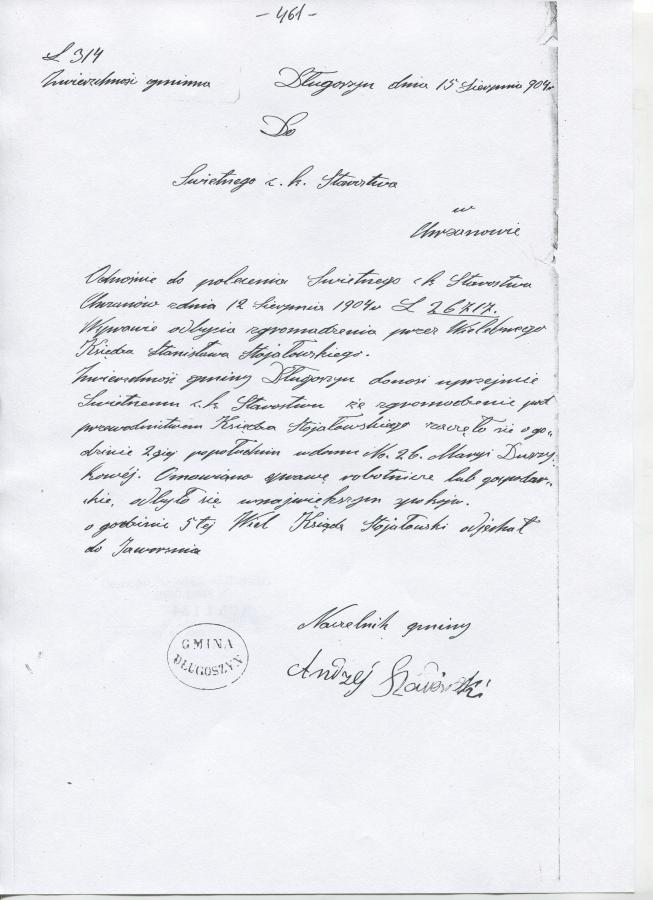 - 461 -
L 314
Zwierzchność gminna Długoszyn dnia 15 Sierpnia 904r
Do
Swietnego c. k. Starostwa
w
Chrzanowie
Odnośnie do polecenia Swietnego c k Starostwa
Chrzanów zdnia 12 Sierpnia 1904r L 26717.
Wsprawie odbycia zgromadzenia przez Wielebnego
Księdza Stanisława Stojałowskiego.
Zwierzchność gminy Długoszyn donosi uprzejmie
Swietnemu c.k. Starostwu że zgromadzenie pod
przewodnictwem Księdza Stojałowskiego zaczęło się o go-
dzinie 2giej popołudniu wdomu No. 26. Maryi Duszy-
kowéj. Omawiano sprawę robotnicze lub gospodar-
kie, odbyło się wnajwiększym spokoju.
o godzinie 5tej Wiel Ksiądz Stojałowski odjechał
do Jaworznia
Naczelnik gminy
Andrzej
GMINA
DŁUGOSZYN